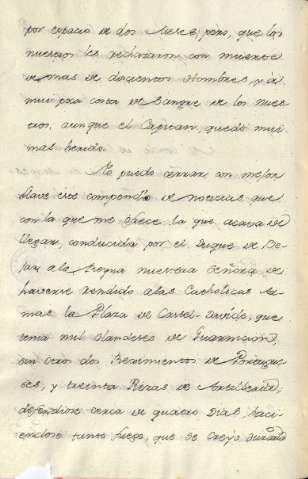 por espacio de dos Meses, pero, que los
nuestros les rechazaron con muerte
de mas de doscientos Hombres, y à
mui poca costa de Sangre de los nues
tros, aunque el Capitan, quedò mui
mal herido.
No puedo cerrar con mejor
llave este compendio de noticias que
con la que me ofrece la que acava de
llegar, conducida por el Duque de Be
jar à la Reyna nuestra Señora de
haverse rendido à las Catholicas Ar
mas la Plaza de Castel-Davide, que
tenia mil Olandeses de Guarnicion,
con otros dos Regimientos de Portugue
ses, y treinta Piezas de Artilleria,
defendiose cerca de quatro dias, haci
endose tanto fuego, que se creyò